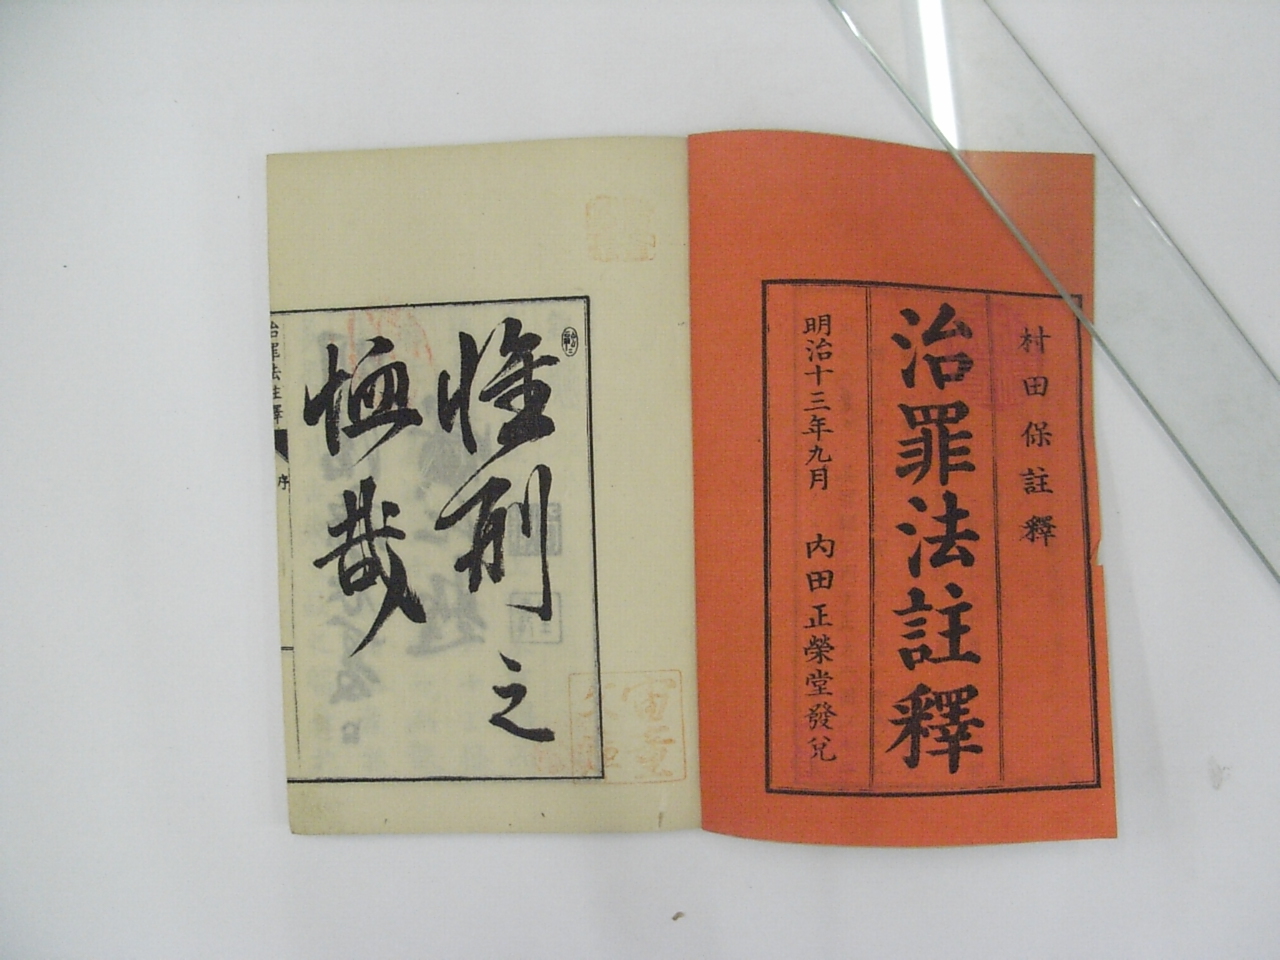 村田保註釋
治罪法註釋
明治十三年九月 内田正榮堂發兌
惟刑之
恤哉
治罪法註釋
序